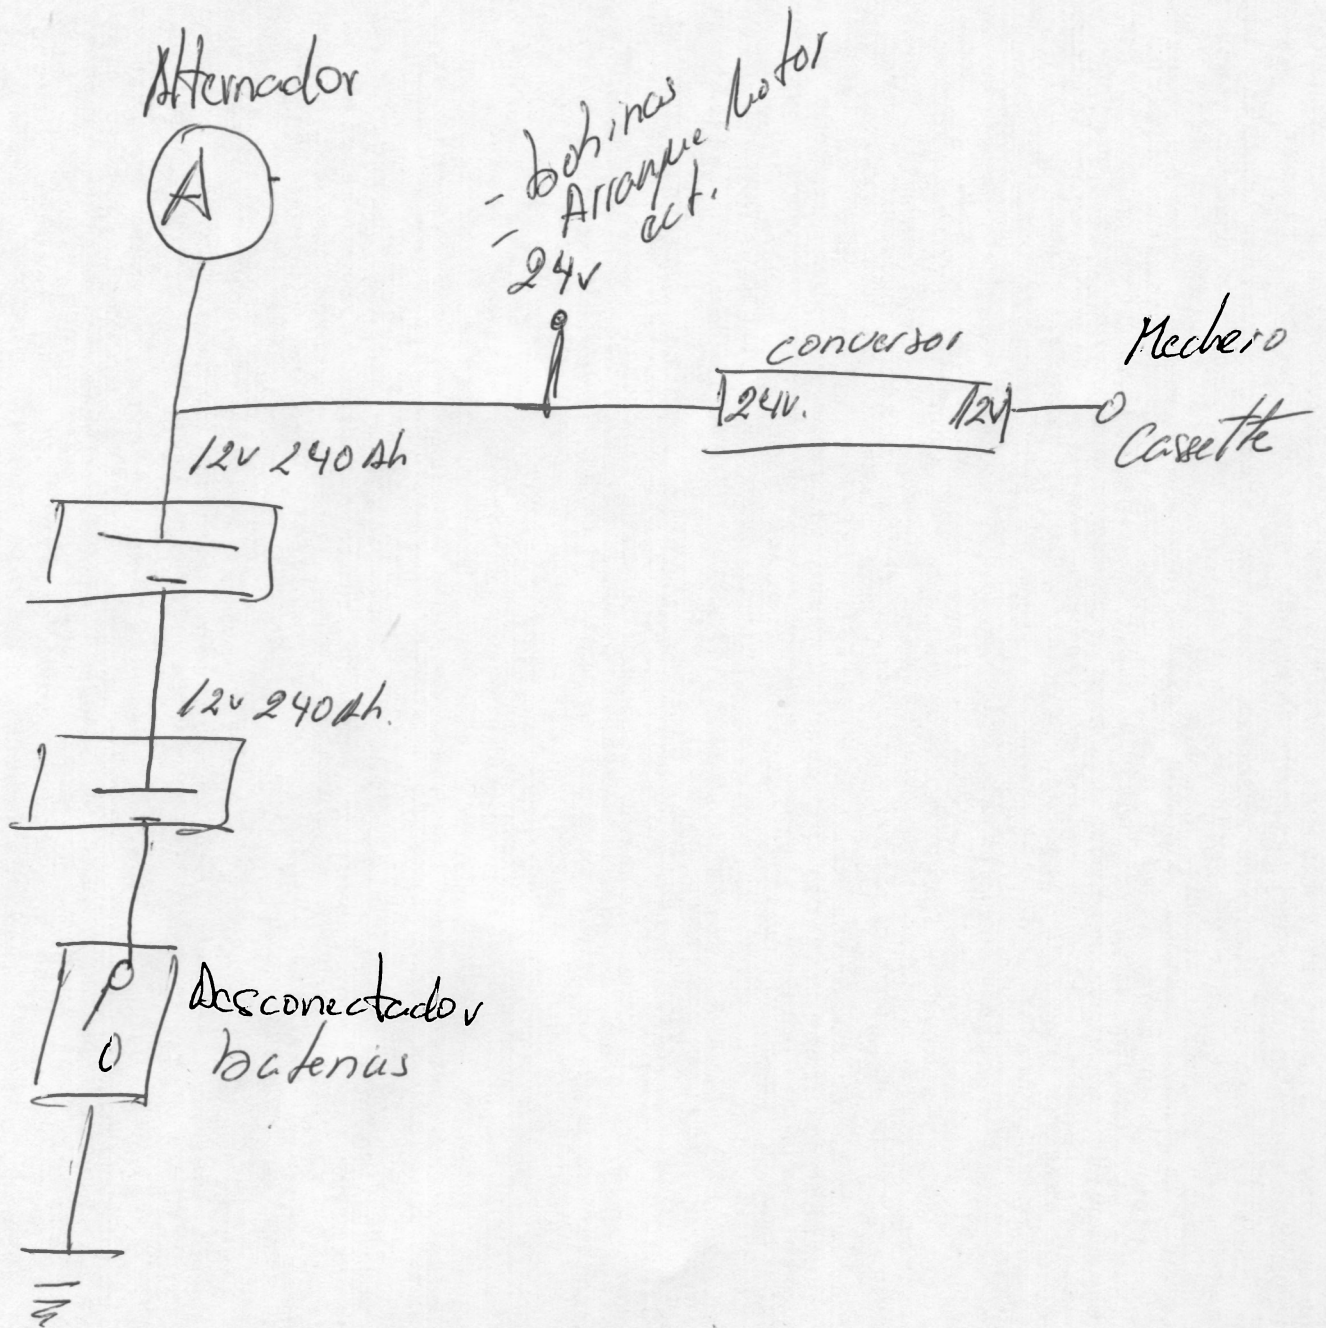 Alternador
A
- bobinas
- Arranque Motor
ect.
24v
conversor
24v.
12v
Mechero
Cassette
12v 240Ah
12v 240Ah.
Desconectador
baterias